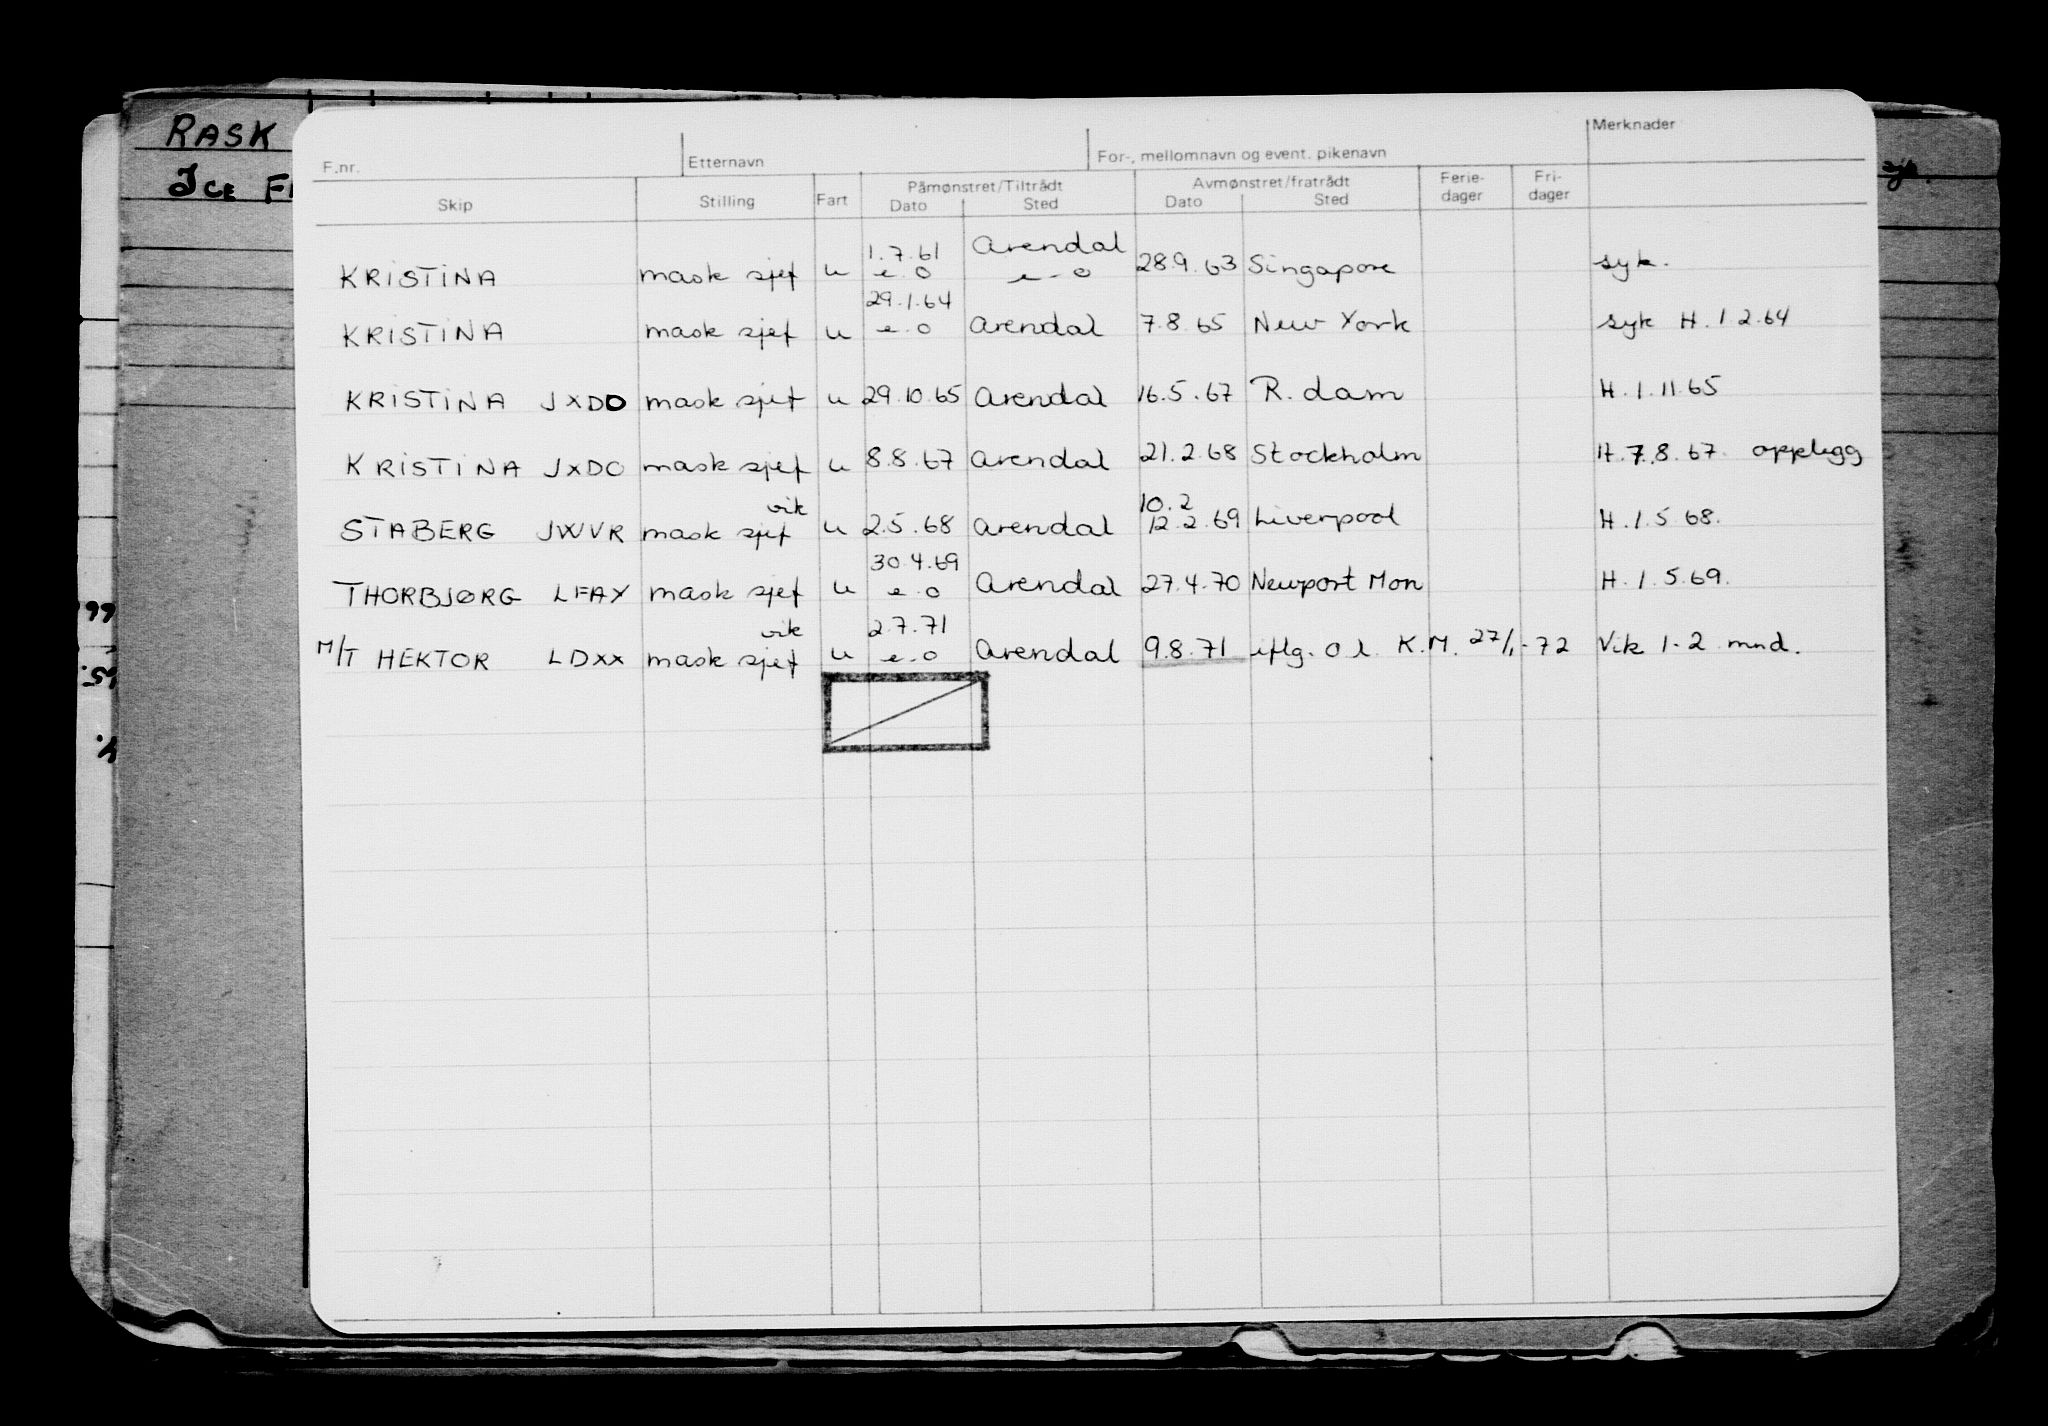 RASK
ICE
F.nr.
Etternavn
For-, mellomnavn og event. pikenavn
Merknader
Skip
Stilling
Fart
Påmønstret/Tiltrådt
Dato
Sted
Avmønstret/fratrådt
Dato
Sted
Ferie-
dager
Fri-
dager
1.7.61 Arendal
KRISTINA mask sjef u e.o e-o 28.9.63 Singapore syk.
29.1.64
KRISTINA mask sjef u e.o Arendal 7.8.65 New York syk H.1.2.64
KRISTINA JXDO mask sjef u 29.10.65 Arendal 16.5.67 R.dam H.1.11.65
KRISTINA JXDO mask sjef u 8.8.67 Arendal 21.2.68 Stockholm H.7.8.67. opplegg
vik 10.2
STABERG JWVR mask sjef u 2.5.68 Arendal 12.2.69 Liverpool H.1.5 68.
30.4.69
THORBJØRG LFAY mask sjef u e.o Arendal 27.4.70 Newport Mon H.1.5.69.
vik 2.7.71
M/T HEKTOR LDXX mask sjef u e.o Arendal 9.8.71 iflg. o.l. K.M. 27/1-72 Vik 1-2 mnd.